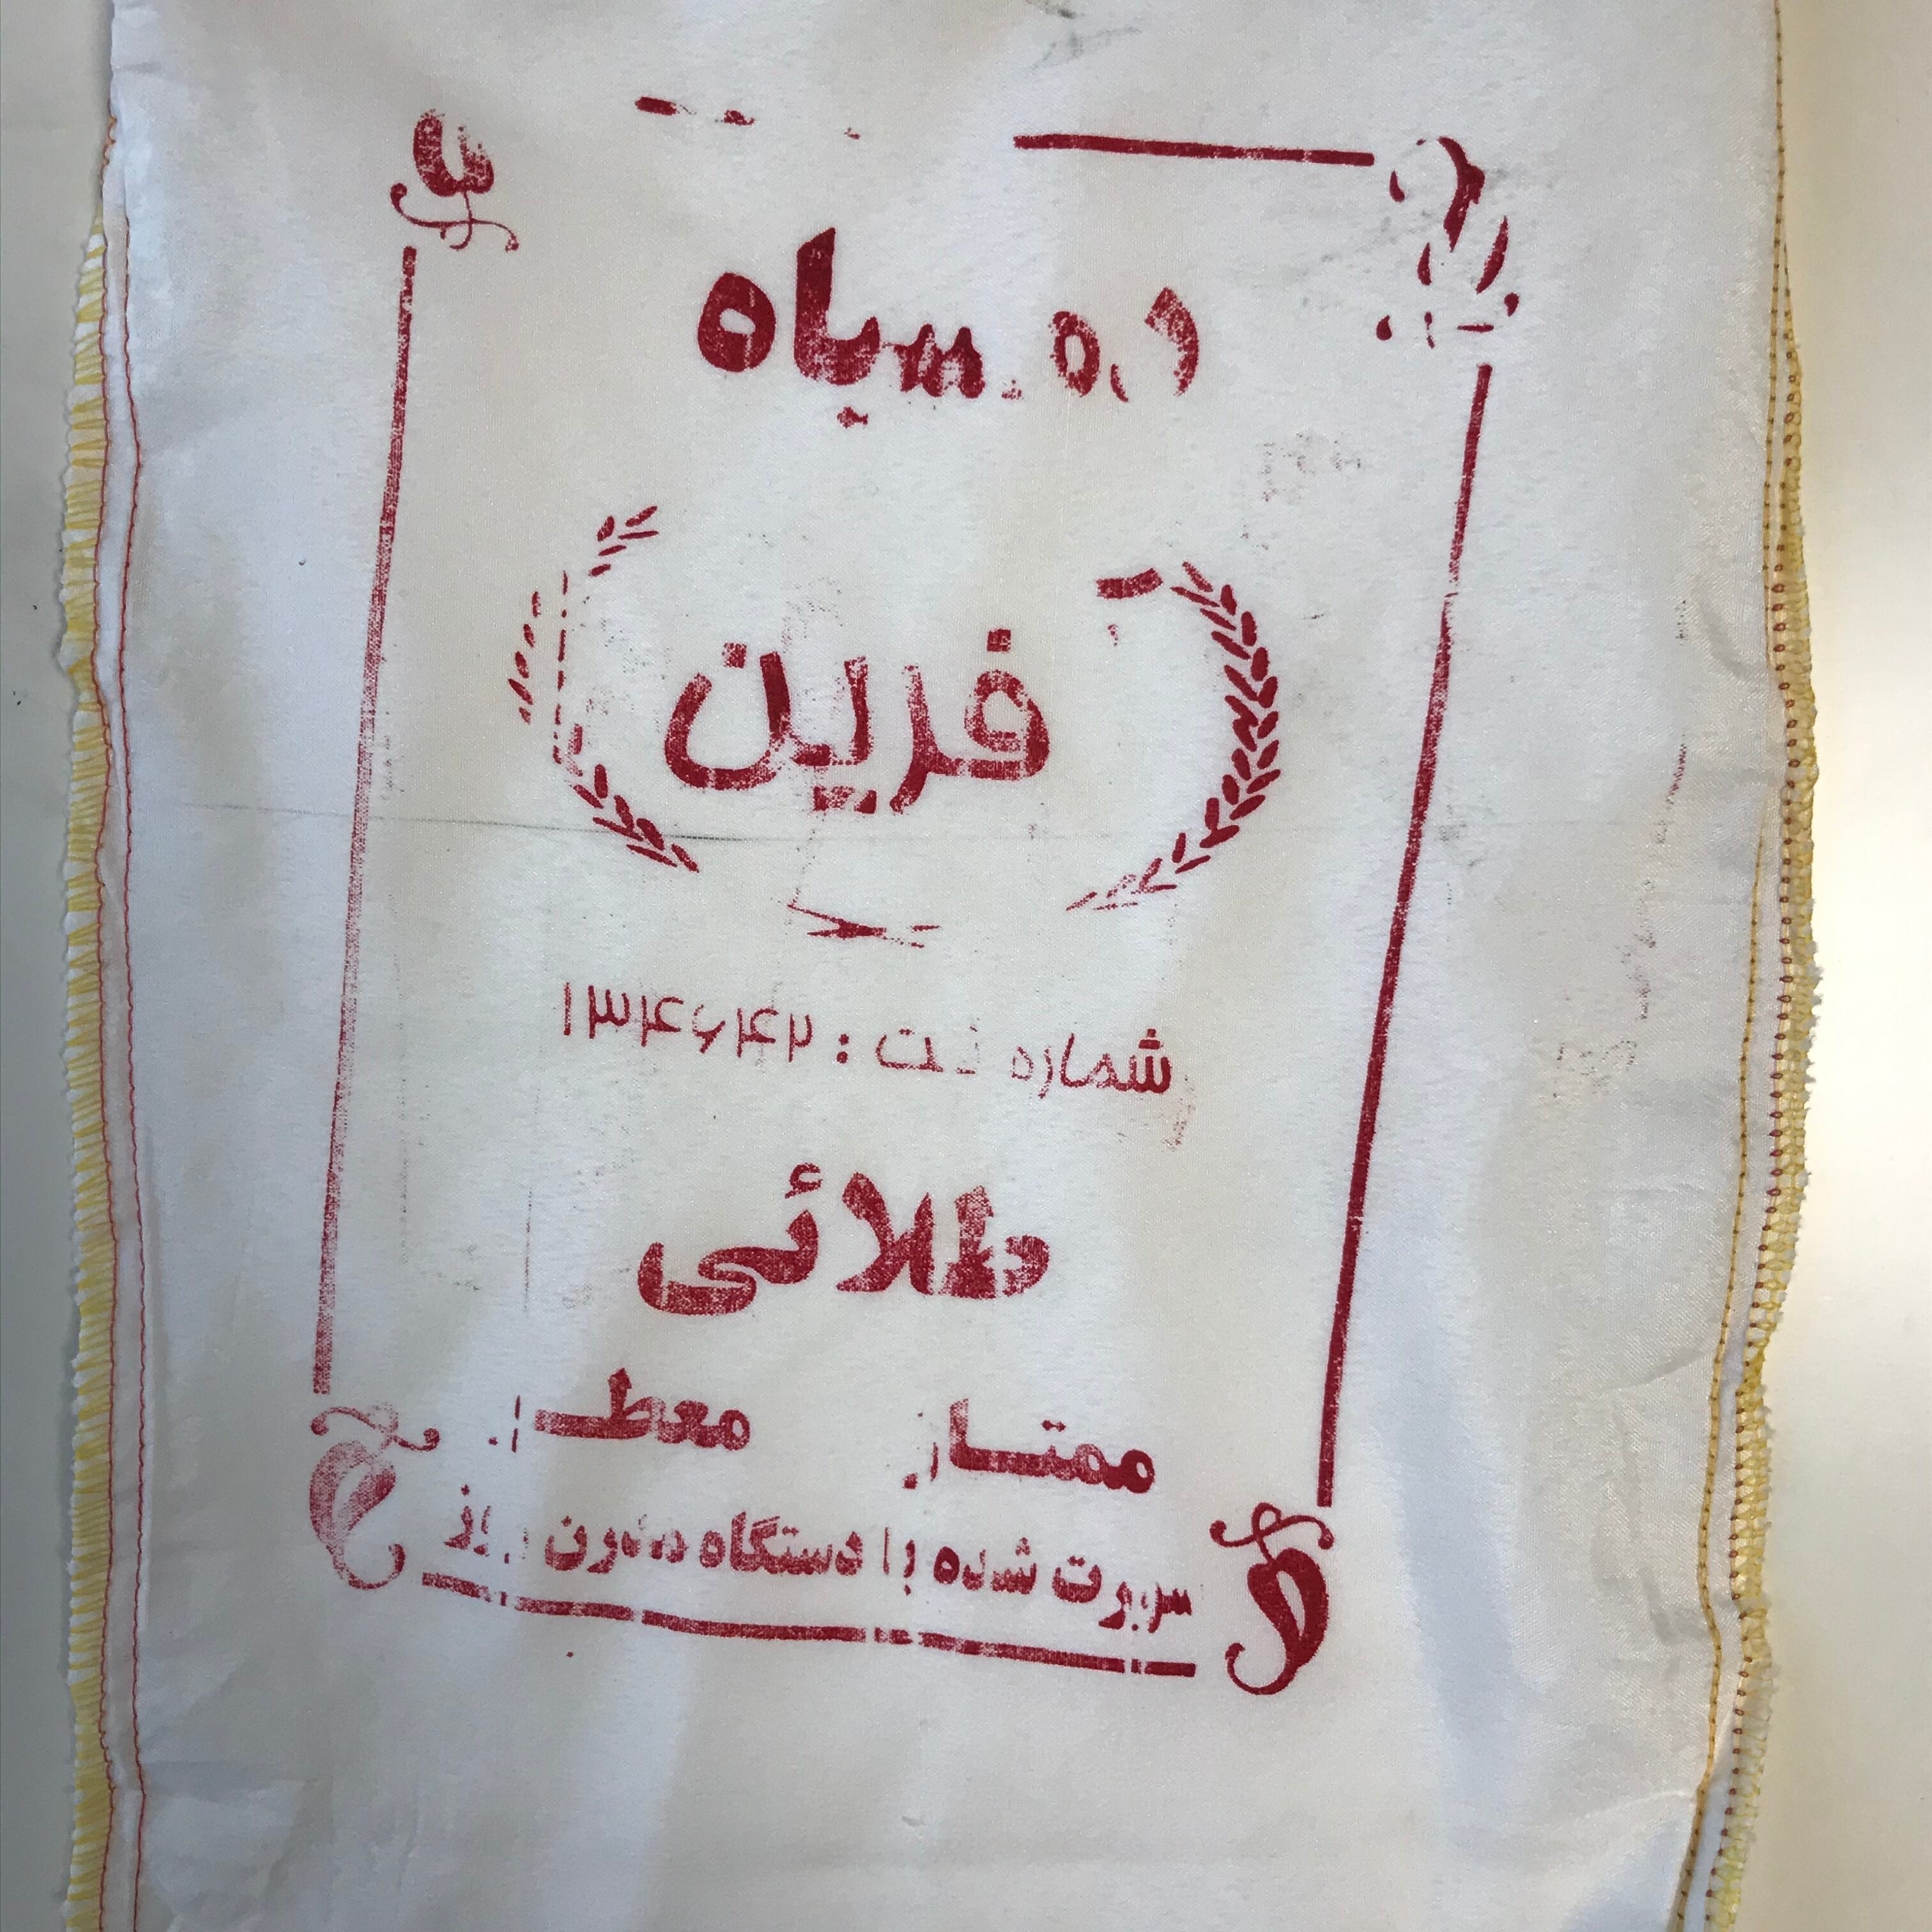 سیاه
فرین
شماره ثبت : ۱۳۴۶۴۲
طلائی
ممتــاز معطــر
سورت شده با دستگاه مدرن روز